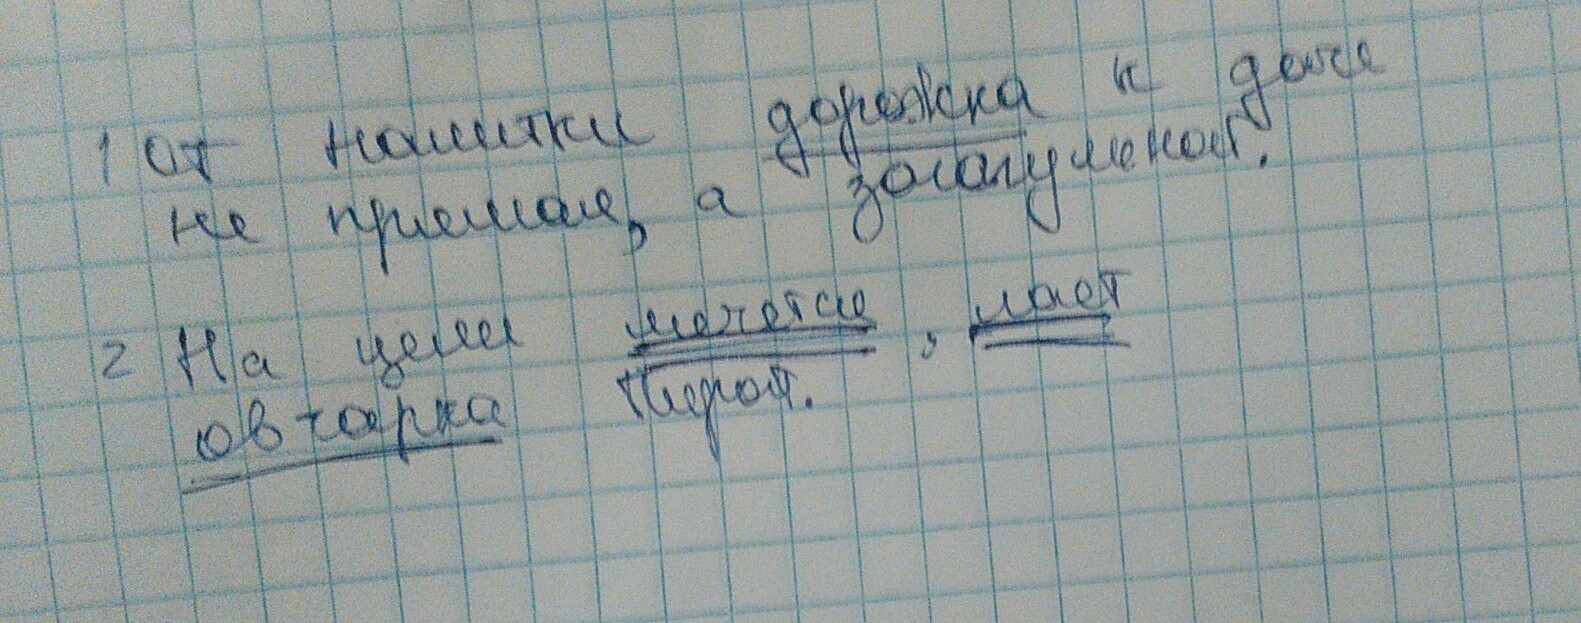 1 От калитки дорожка к даче
не прямая, а полукругом.
2 На цепи мечется, лает
овчарка Пират.